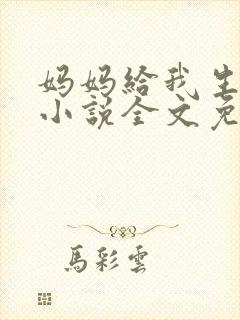 妈妈給我生
小説全文免
馬彩雲